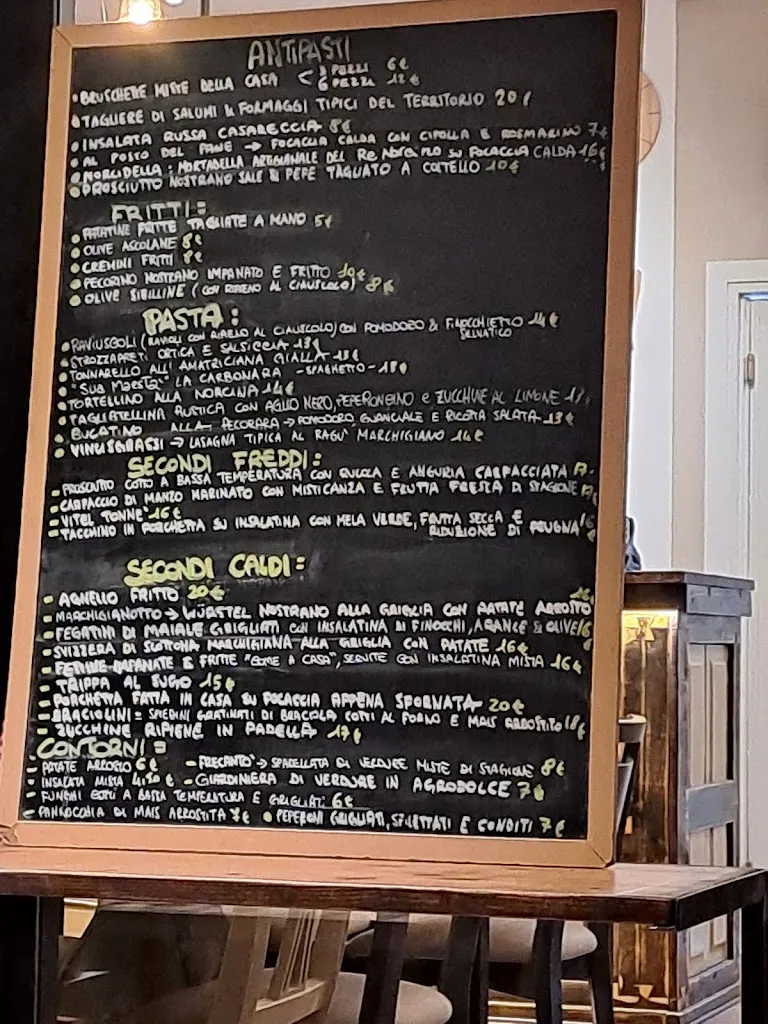 ANTIPASTI
• BRUSCHETTE MISTE DELLA CASA < 3 PEZZI 6€
6 PEZZI 12€
• TAGLIERE DI SALUMI & FORMAGGI TIPICI DEL TERRITORIO 20€
• INSALATA RUSSA CASARECCIA 8€
• AL POSTO DEL PANE → FOCACCIA CALDA CON CIPOLLA E ROSMARINO 7€
• MORCIDELLA: MORTADELLA ARTIGIANALE DEL RE NORCINO SU FOCACCIA CALDA 16€
• PROSCIUTTO NOSTRANO SALE & PEPE TAGLIATO A COLTELLO 10€
FRITTI:
• PATATINE FRITTE TAGLIATE A MANO 5€
• OLIVE ASCOLANE 8€
• CREMINI FRITTI 8€
• PECORINO NOSTRANO IMPANATO E FRITTO 10€
• OLIVE SIBILLINE (CON RIPIENO AL CIAUSCOLO) 8€
PASTA:
• RAVIUSGOLI (RAVIOLI CON RIPIENO AL CIAUSCOLO) CON POMODORO & FINOCCHIETTO 14€
SELVATICO
• STROZZAPRETI ORTICA E SALSICCIA 13€
• TONNARELLO ALL'AMATRICIANA GIALLA 13€
• "SUA MAESTÀ" LA CARBONARA - SPAGHETTO - 15€
• TORTELLINO ALLA NORCINA 14€
• TAGLIATELLINA RUSTICA CON AGLIO NERO, PEPERONCINO E ZUCCHINE AL LIMONE 13€
• BUCATINO ALLA PECORARA → POMODORO, GUANCIALE E RICOTTA SALATA 13€
• VINCISGRASSI → LASAGNA TIPICA AL RAGÙ MARCHIGIANO 14€
SECONDI FREDDI:
- PROSCIUTTO COTTO A BASSA TEMPERATURA CON RUCOLA E ANGURIA CARPACCIATA
- CARPACCIO DI MANZO MARINATO CON MISTICANZA E FRUTTA FRESCA DI STAGIONE
- VITEL TONNÈ 16€
- TACCHINO IN PORCHETTA SU INSALATINA CON MELA VERDE, FRUTTA SECCA E
RIDUZIONE DI PRUGNA 16€
SECONDI CALDI:
- AGNELLO FRITTO 20€
- MARCHIGIANOTTO → WÜRSTEL NOSTRANO ALLA GRIGLIA CON PATATE ARROSTO 16€
- FEGATINI DI MAIALE GRIGLIATI CON INSALATINA DI FINOCCHI, ARANCE & OLIVE
- SVIZZERA DI SCOTTONA MARCHIGIANA ALLA GRIGLIA CON PATATE 16€
- FETTINE IMPANATE & FRITTE "COME A CASA", SERVITE CON INSALATINA MISTA 16€
- TRIPPA AL SUGO 15€
- PORCHETTA FATTA IN CASA SU FOCACCIA APPENA SFORNATA 20€
- BRACIOLINI = SPIEDINI GRATINATI DI BRACIOLA COTTI AL FORNO E MAIS ARROSTITO 18€
- ZUCCHINE RIPIENE IN PADELLA 17€
CONTORNI:
- PATATE ARROSTO 6€ - FRECANTÒ → SPADELLATA DI VERDURE MISTE DI STAGIONE 8€
- INSALATA MISTA 4,50€ - GIARDINIERA DI VERDURE IN AGRODOLCE 7€
- FUNGHI COTTI A BASSA TEMPERATURA E GRIGLIATI 6€
- PANNOCCHIA DI MAIS ARROSTITA 7€ • PEPERONI GRIGLIATI, SFILETTATI E CONDITI 7€